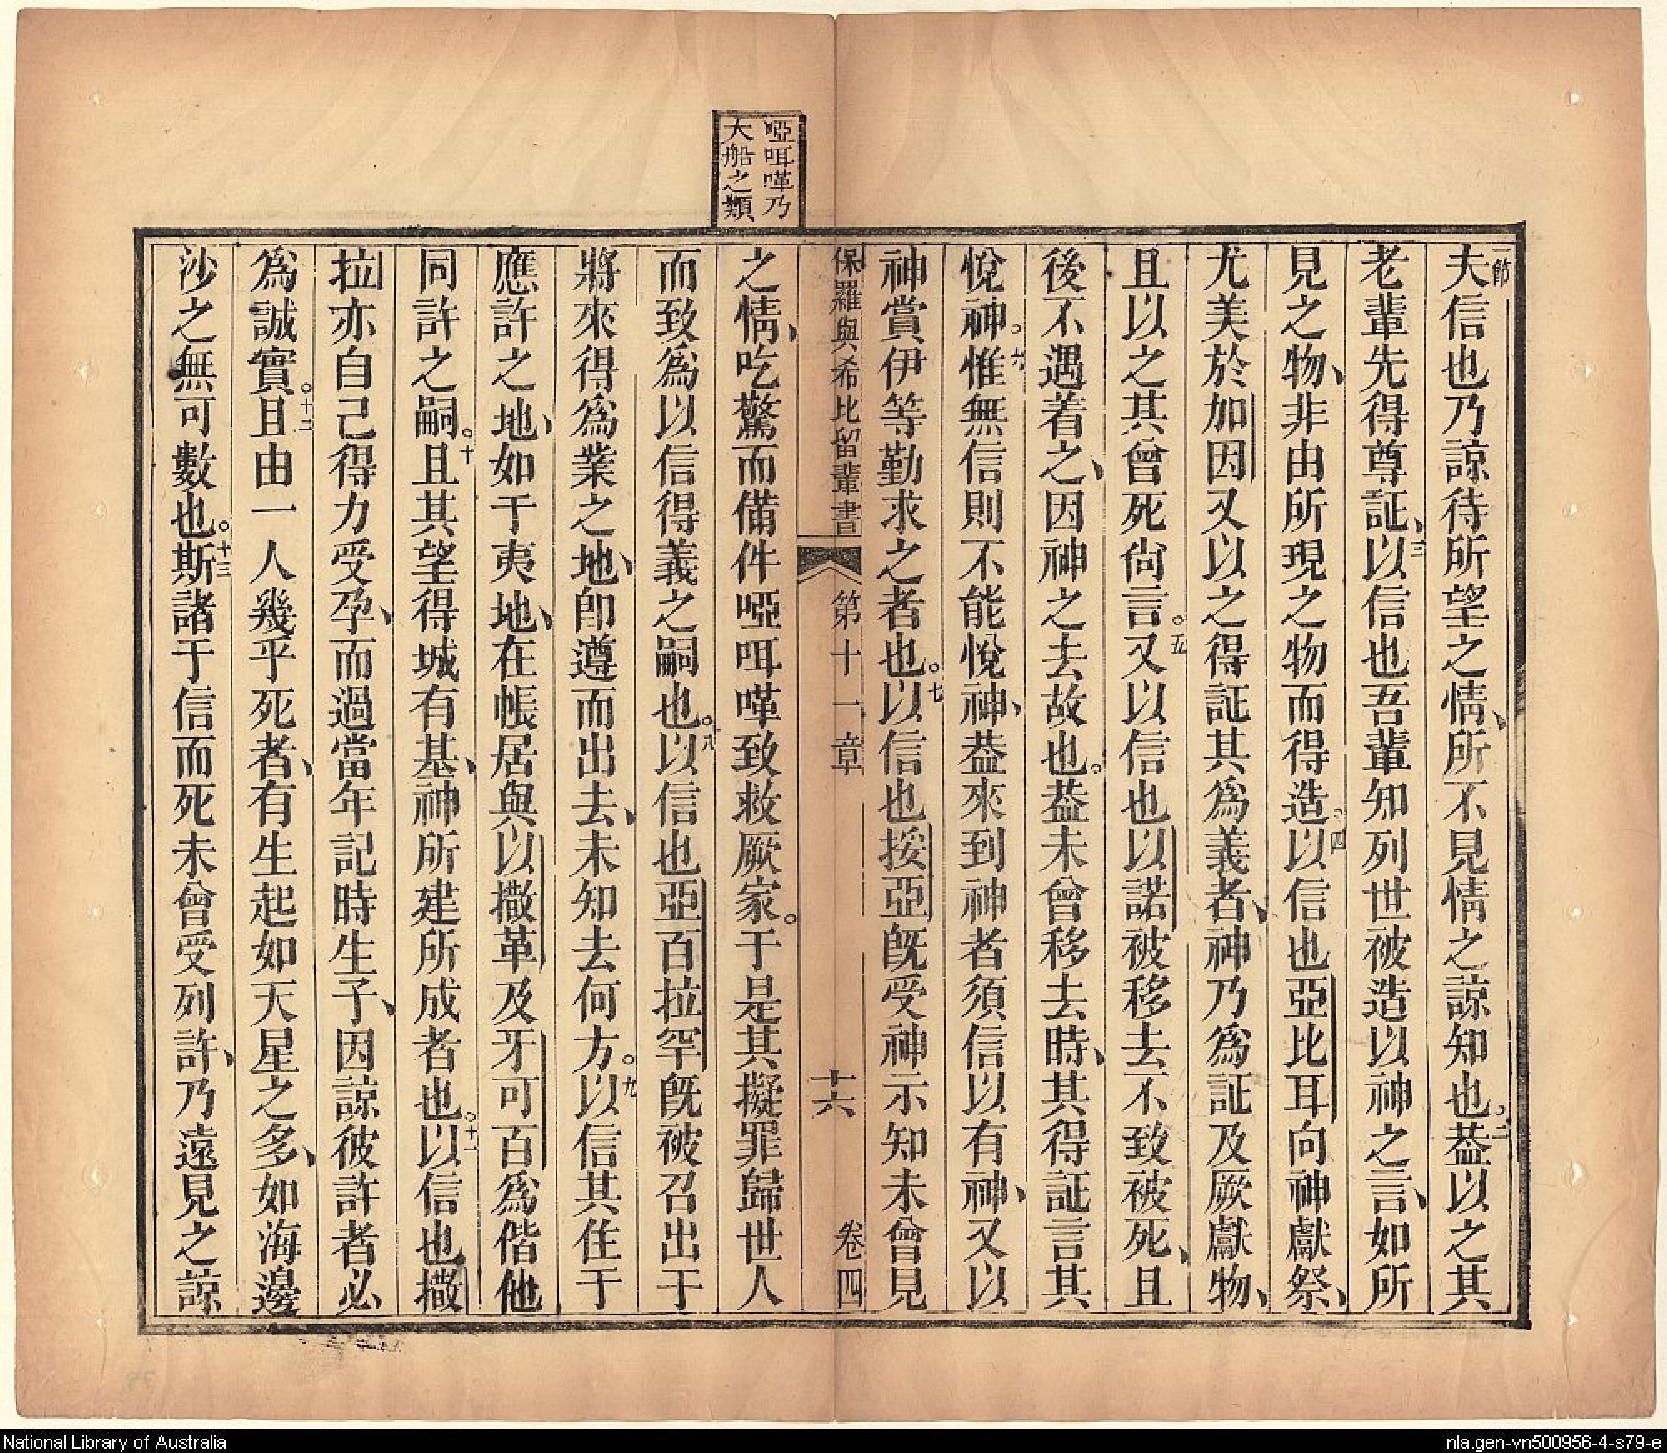 啞咡嘆乃
大船之類
一節
夫信也乃諒待所望之情、所不見情之諒知也。二葢以之其
老輩先得尊証、三以信也吾輩知列世被造以神之言、如所
見之物、非由所現之物而得造。四以信也亞比耳向神獻祭、
尤美於加因又以之得証其為義者、神乃為証及厥獻物、
且以之其曾死尙言。五又以信也以諾被移去不致被死、且
後不遇着之、因神之去故也。葢未曾移去時、其得証言其
悅神。六惟無信則不能悅神、葢來到神者須信以有神、又以
神賞伊等勤求之者也。七以信也挼亞旣受神示知未曾見
保羅與希比留輩書 第十一章 十六 卷四
之情、吃驚而備件啞咡嘆致救厥家。于是其擬罪歸世人
而致為以信得義之嗣也。八以信也亞百拉罕旣被召出于
將來得為業之地、卽遵而出去、未知去何方。九以信其住于
應許之地、如于夷地、在帳居與以撒革及牙可百為偕他
同許之嗣。十且其望得城有基、神所建所成者也。十一以信也撒
拉亦自己得力受孕、而過當年記時生子、因諒彼許者必
為誠實。十二且由一人幾乎死者、有生起如天星之多、如海邊
沙之無可數也。十三斯諸于信而死未曾受列許、乃遠見之諒
National Library of Australia
nla.gen-vn500956-4-s79-e